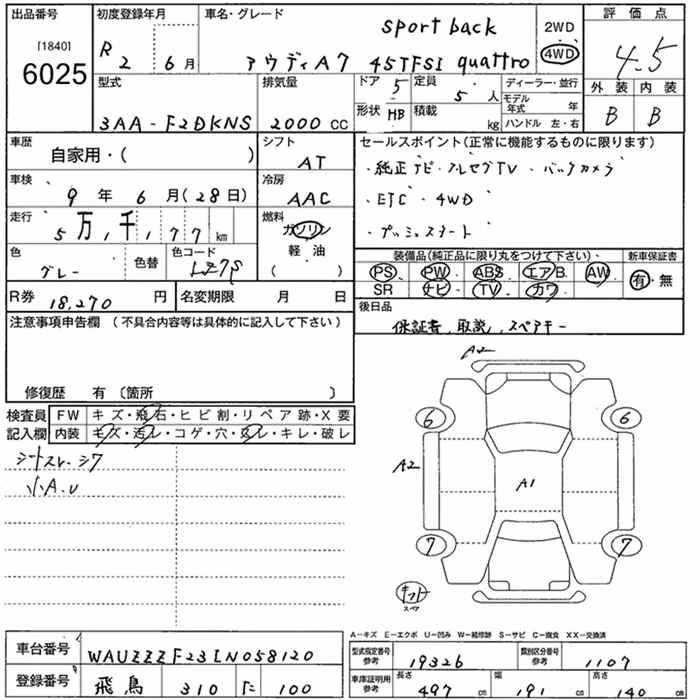 出品番号
[1840]
6025
初度登録年月
R 2 6 月
車名・グレード
sport back
アウディA7 45TFSI quattro
2WD
4WD
評価点
4.5
外装 内装
B B
型式
3AA-F2DKNS
排気量
2000 CC
ドア 5
定員 5 人
形状 HB
積載 kg
ディーラー・並行
モデル年式 年
ハンドル 左・右
車歴
自家用・( )
シフト
AT
車検
9 年 6 月(28日)
冷房
AAC
走行
5万,千,177 km
燃料
ガソリン
軽油
( )
色
グレー
色替
色コード
LZ7S
R券 18,270 円
名変期限 月 日
セールスポイント(正常に機能するものに限ります)
・純正ナビ・フルセグTV・バックカメラ
・ETC・4WD
・プッシュスタート
装備品(純正品に限り丸をつけて下さい)
PS PW ABS エアB. AW
SR ナビ TV カワ
新車保証書
有・無
後日品
保証書、取説、スペアキー
注意事項申告欄(不具合内容等は具体的に記入して下さい)
修復歴 有(箇所 )
検査員記入欄
FW キズ・飛石・ヒビ割・リペア跡・X要
内装 キズ・汚レ・コゲ・穴・スレ・キレ・破レ
シートスレ・シワ
小A.U
A2
6 6
A2
A1
7 7
キット
スペア
A-キズ E-エクボ U-凹み W-補修跡 S-サビ C-腐食 XX-交換済
車台番号 WAUZZZF23LN058120
登録番号 飛鳥 310 に 100
型式指定番号 参考 19326
類別区分番号 参考 1107
車庫証明用 参考
長さ 497 cm
幅 191 cm
高さ 140 cm